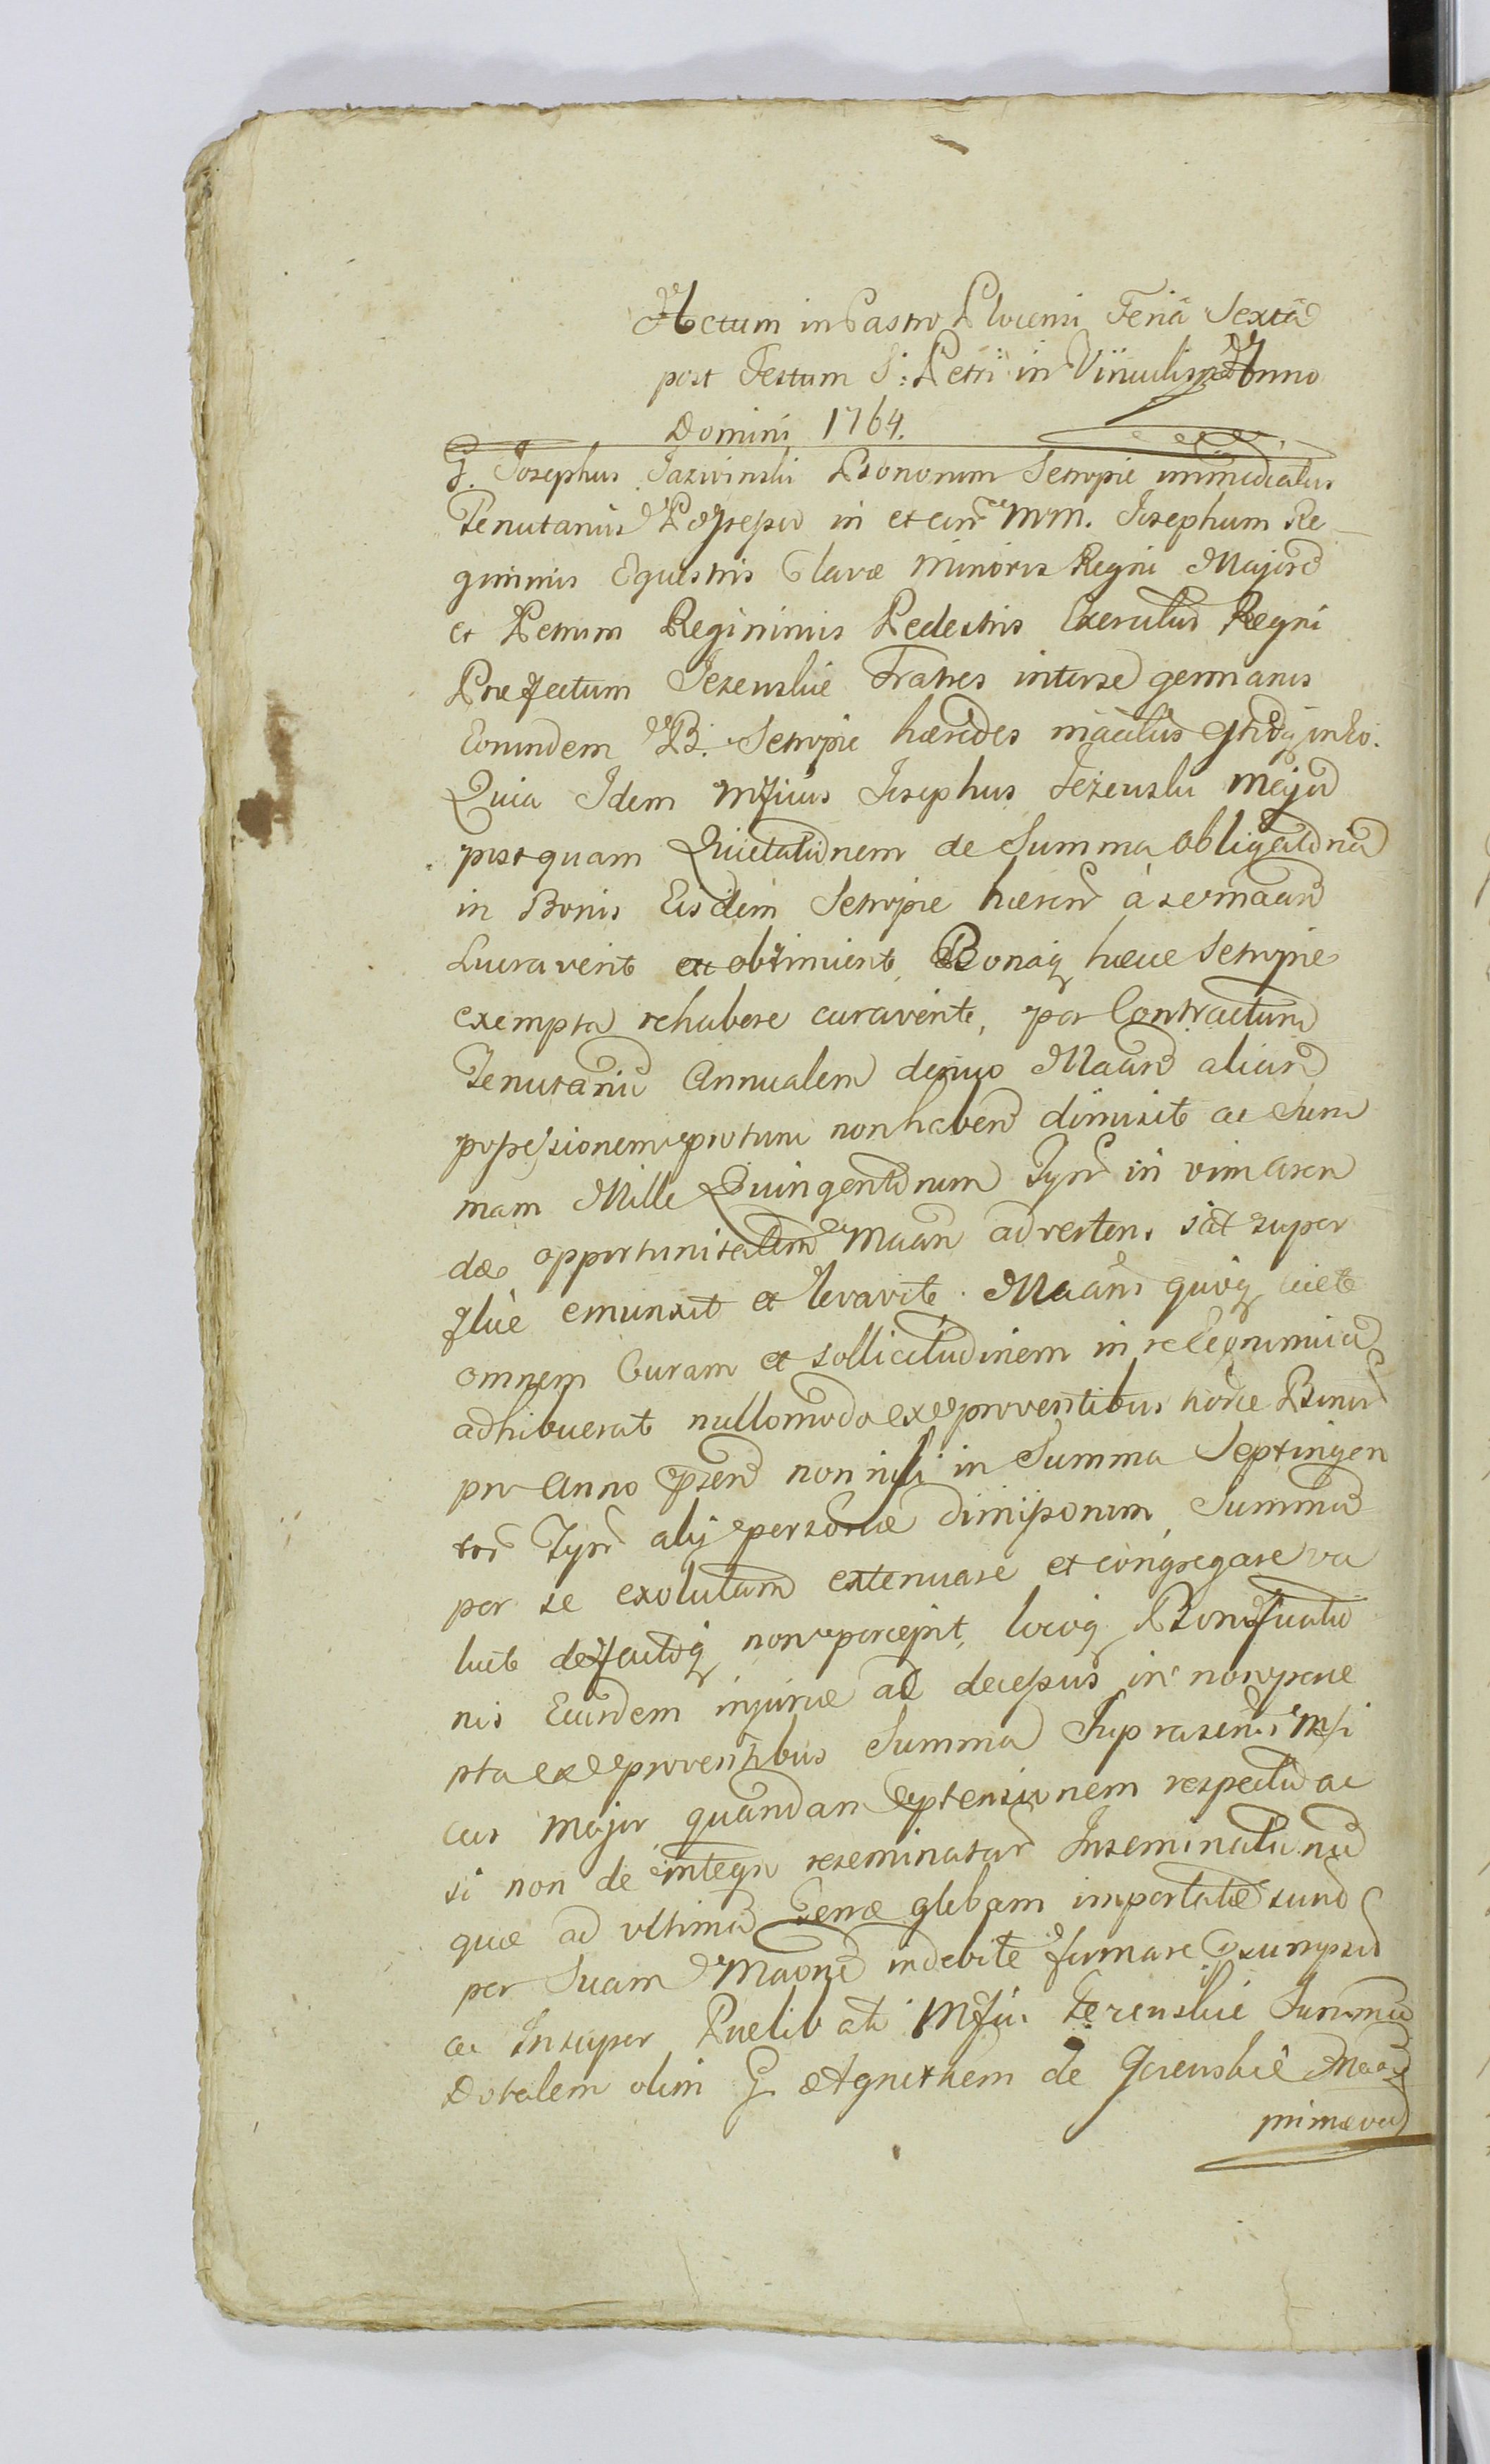 Actum in Castro Plocensi Feria Sexta
post Festum S: Petri in Vinculis Anno
Domini 1764.
G. Josephus Jazwinski Bonorum Setropie immediatus
Tenutarius Possessor in et cum MM. Josephum Re
giminis Equestris Clavæ Minoris Regni Majore
et Petrum Regiminis Pedestris Exercitus Regni
Præfectum Jezenskie Fratres interse germanus
Eorundem B. Setropie hæredes
Quia Idem Mficus Josephus Jezenski Major
postquam Quietationem de Summa obligatoria
in Bonis Eisdem Setropie hæren a se maan
Lucraverit et obtinuerit, Bonaq hæce Setropie
exempta rehabere curaverit, per Contractum
Tenutarium Annualem denuo Maan aliam
possessionem protum non haben dimisit ac Sum
mam Mille Quingentorum Tynf in vim Aren
dæ opportunitatem Maan advertens sat super
fluè emunxit et levavit. Maans quoq licet
omnem Curam et sollicitudinem in re Economica
adhibuerat nullomodo ex proventibus horce Bonor
pro Anno præsen non nisi in Summa Septingen
tor Tynf alij personæ dimissorum, Summa
per se exolutam extenuare et congregare va
luit defectoq non percepit, locoq Bonificatio
nis Eiusdem injuriæ ac decessus in non perce
pta ex proventibus Summa Suprasens Mfi
cus Major quandam prætensionem respectu ac
si non de integro reseminatar Inseminationu
quæ ad ultima Terræ glebam importatæ sunt
per Suam Maone indebite formare præsumpsit
ac Insuper Prælibati Mfici Jezenskie Summa
Dotalem olim G. Agnethem de Jezenskie Maa
primæva